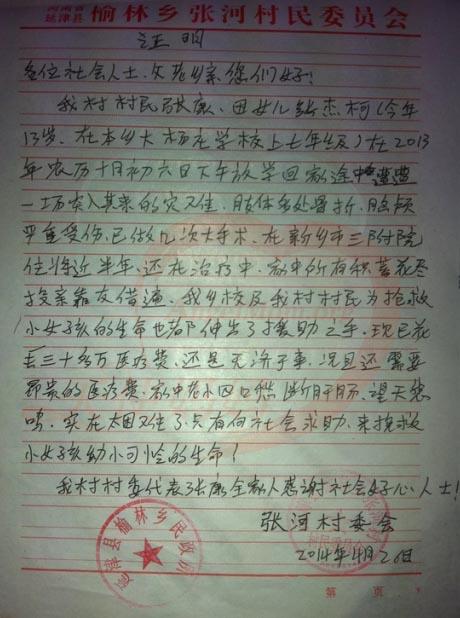 河南省
延津县 榆林乡张河村民委员会
证明
各位社会人士、父老乡亲您们好!
我村村民张康、因女儿张杰柯(今年
13岁、在本乡大杨庄学校上七年级)在2013
年农历十月初六日下午放学回家途中遭遭
一场突入其来的灾难、肢体多处骨折、胳颅
严重受伤、已做几次大手术、在新乡市三附院
住将近半年、还在治疗中、家中所有积蓄花尽
投亲靠友借遍、我乡校及我村村民为抢救
小女孩的生命也都伸出了援助之手、现已花
去三十多万医疗费、还是无济于事、况且还需要
昂贵的医疗费、家中老小四口愁断肝肠、望天悲
鸣、实在太困难了、只有向社会求助、来挽救
小女孩幼小可怜的生命!
我村村委代表张康全家人感谢社会好心人士!
张河村委会
2014年4月26日
延津县榆林乡民政所
第 页